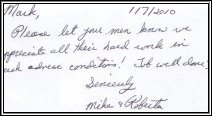 Mark, 1/7/2010
Please let your men know we
appreciate all their hard work in
such adverse conditions! Job well done!
Sincerely
Mike & Roberta